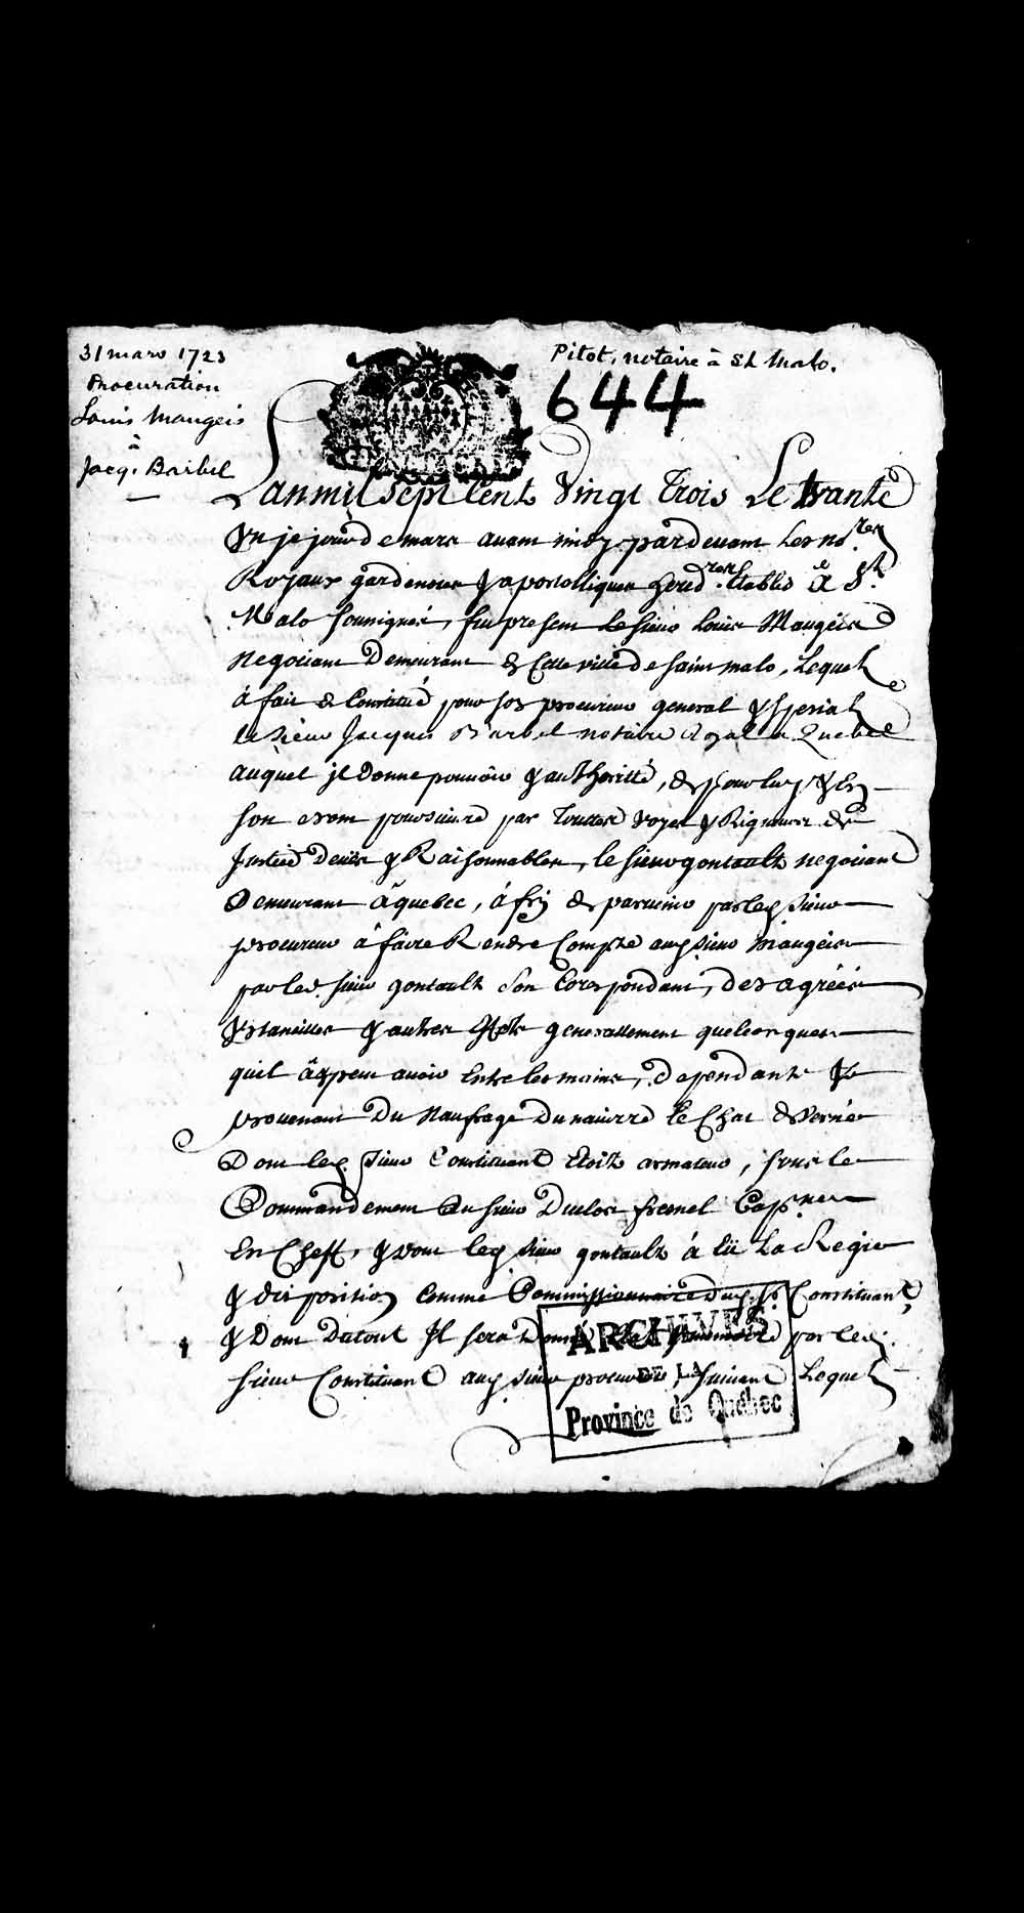 31 mars 1723
Procuration
Louis Maugeis
à
Jacq. Barbel
Pitot, notaire à St Malo.
644
Lan mil sept Cent Vingt Trois Le trante
Un je jour de mars avant midy pardevant Les no.res
Royaux gardenottes & apostolliques hered.res Etablis à St
Malo soussignés, fut present le sieur Louis Maugeis
negociant Demeurant En Cette ville de saint malo, Lequel
à fait & Constitué pour son procureur general & special
le sieur Jacques Barbel notaire Royal a Quebec
auquel jl donne pouvoir & authoritté, de pour luy & En
son nom poursuivre par Touttes voyes & Rigueurs de
Justice Deües & Raisonnables, le sieur gontault negociant
Demeurant à quebec, à fin de parvenir par led sieur
procureur à faire Rendre Compte aud sieur Maugeis
par led. sieur gontault son Corespondant, des agréés
Ustancilles & autres Effets generallement quelconques
quil à & peut avoir Entre les mains, dependants &
provenant Du Naufrage Du navirre le Chat
Dont led. sieur Constituant Etoit armateur, sous le
Commandement du sieur Duclos fresnel Cap.ne
En Cheff, & dont led sieur gontault à Eü La Regie
& disposition Comme Commissionnaire dud. sr. Constituant
& Dont Dutout Il sera Donné par led.
sieur Constituant aud sieur procureur, suivant Lequel
ARCHIVES
DE LA
Province de Québec